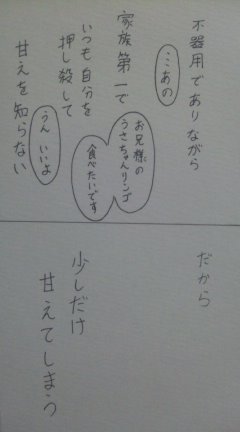 不器用でありながら
ここあの
家族第一で
いつも自分を
押し殺して
お兄様の
うさちゃんリンゴ
食べたいです
甘えを知らない
うん いいよ
だから
少しだけ
甘えてしまう